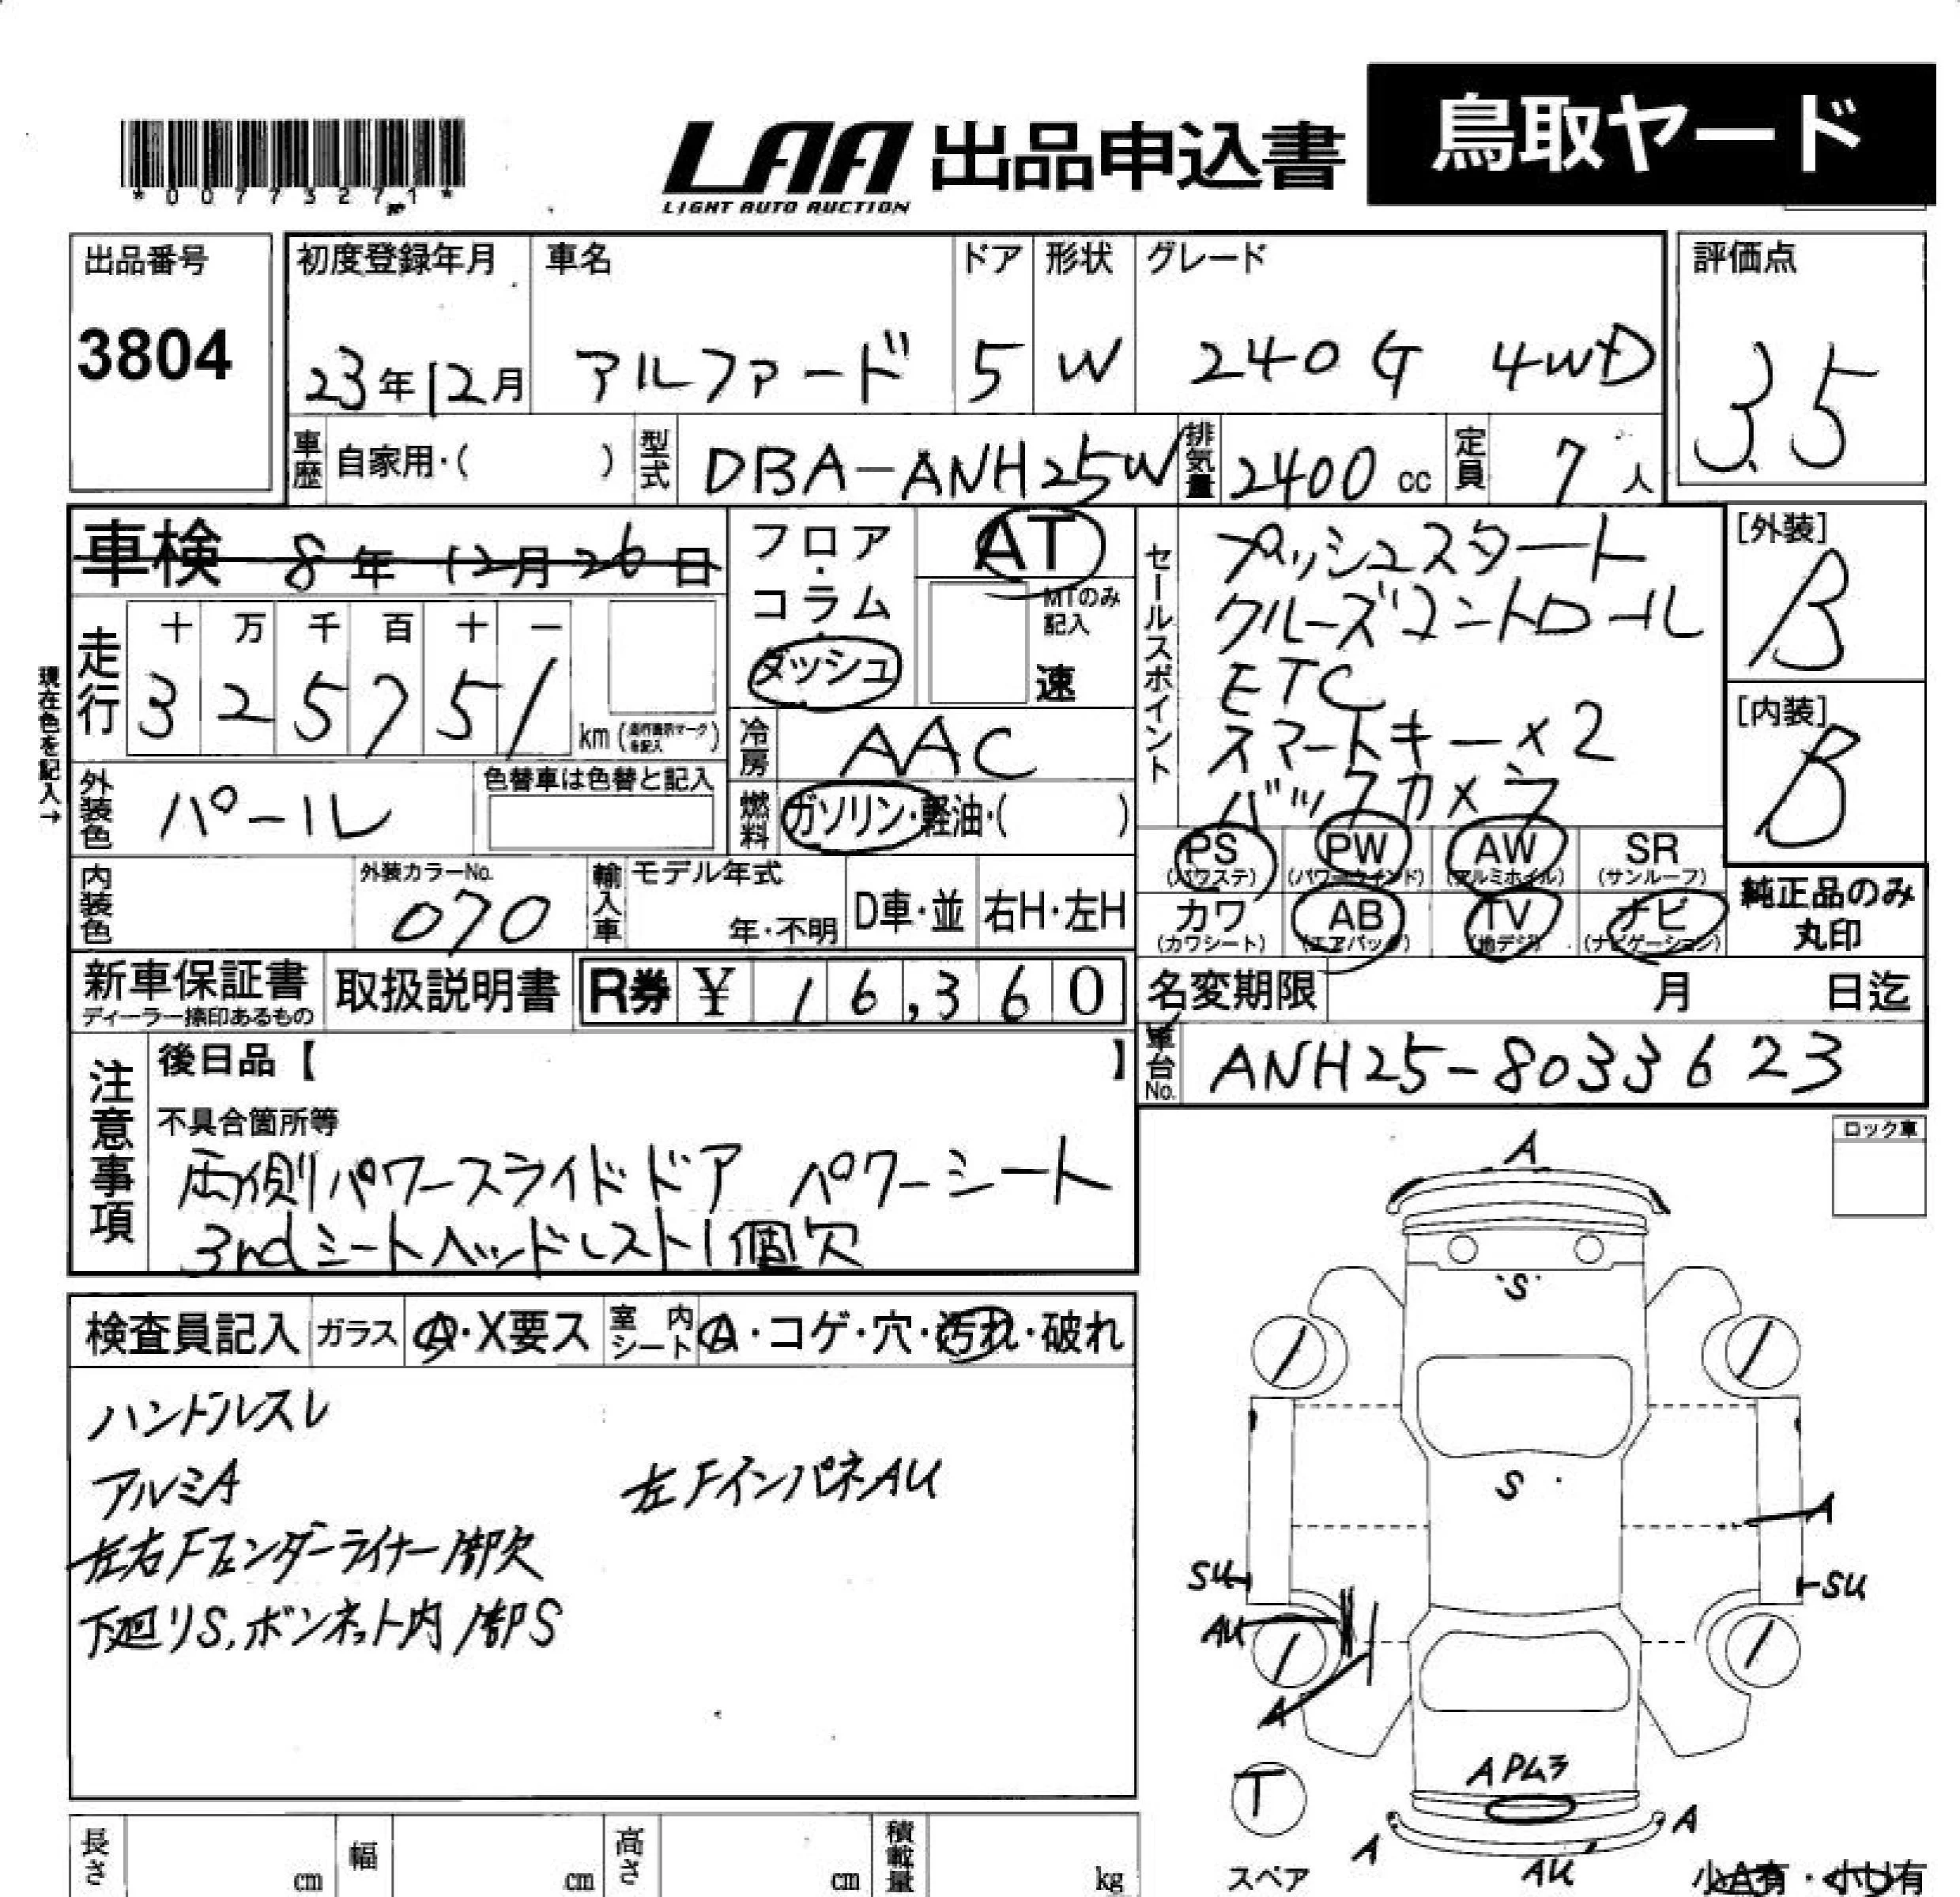 鳥取ヤード
LAA 出品申込書
LIGHT AUTO AUCTION
*00773271*
出品番号
3804
初度登録年月
23年12月
車名
アルファード
ドア
5
形状
W
グレード
240G 4WD
評価点
3.5
車歴 自家用・( )
型式 DBA-ANH25W
排気量 2400 cc
定員 7 人
車検 8年 12月 26日
フロア・コラム・ダッシュ
AT
MTのみ記入
速
セールスポイント
プッシュスタート
クルーズコントロール
ETC
スマートキー×2
バックカメラ
[外装]
B
[内装]
B
現在色を記入→
走行
十 万 千 百 十 一
3 2 5 7 5 1
km
冷房 AAC
外装色 パール
色替車は色替と記入
燃料 ガソリン・軽油・( )
PS (パワステ)
PW (パワーウインド)
AW (アルミホイル)
SR (サンルーフ)
カワ (カワシート)
AB (エアバッグ)
TV (地デジ)
ナビ (ナビゲーション)
純正品のみ丸印
内装色
外装カラーNo.
070
輸入車
モデル年式
年・不明
D車・並
右H・左H
新車保証書
ディーラー捺印あるもの
取扱説明書
R券 ¥ 16,360
名変期限 月 日迄
車台No. ANH25-8033623
注意事項
後日品【 】
不具合箇所等
両側パワースライドドア パワーシート
3ndシートヘッドレスト1個欠
ロック車
検査員記入
ガラス A・X要ス
室内シート A・コゲ・穴・汚れ・破れ
ハンドルスレ
アルミA
左Fインパネ AU
左右Fフェンダーライナー1部欠
下廻りS,ボンネット内1部S
A
S
S
A
SU
SU
AU
A
A PU3
T
A
A
AU
スペア
小A有・小U有
長さ cm
幅 cm
高さ cm
積載量 kg